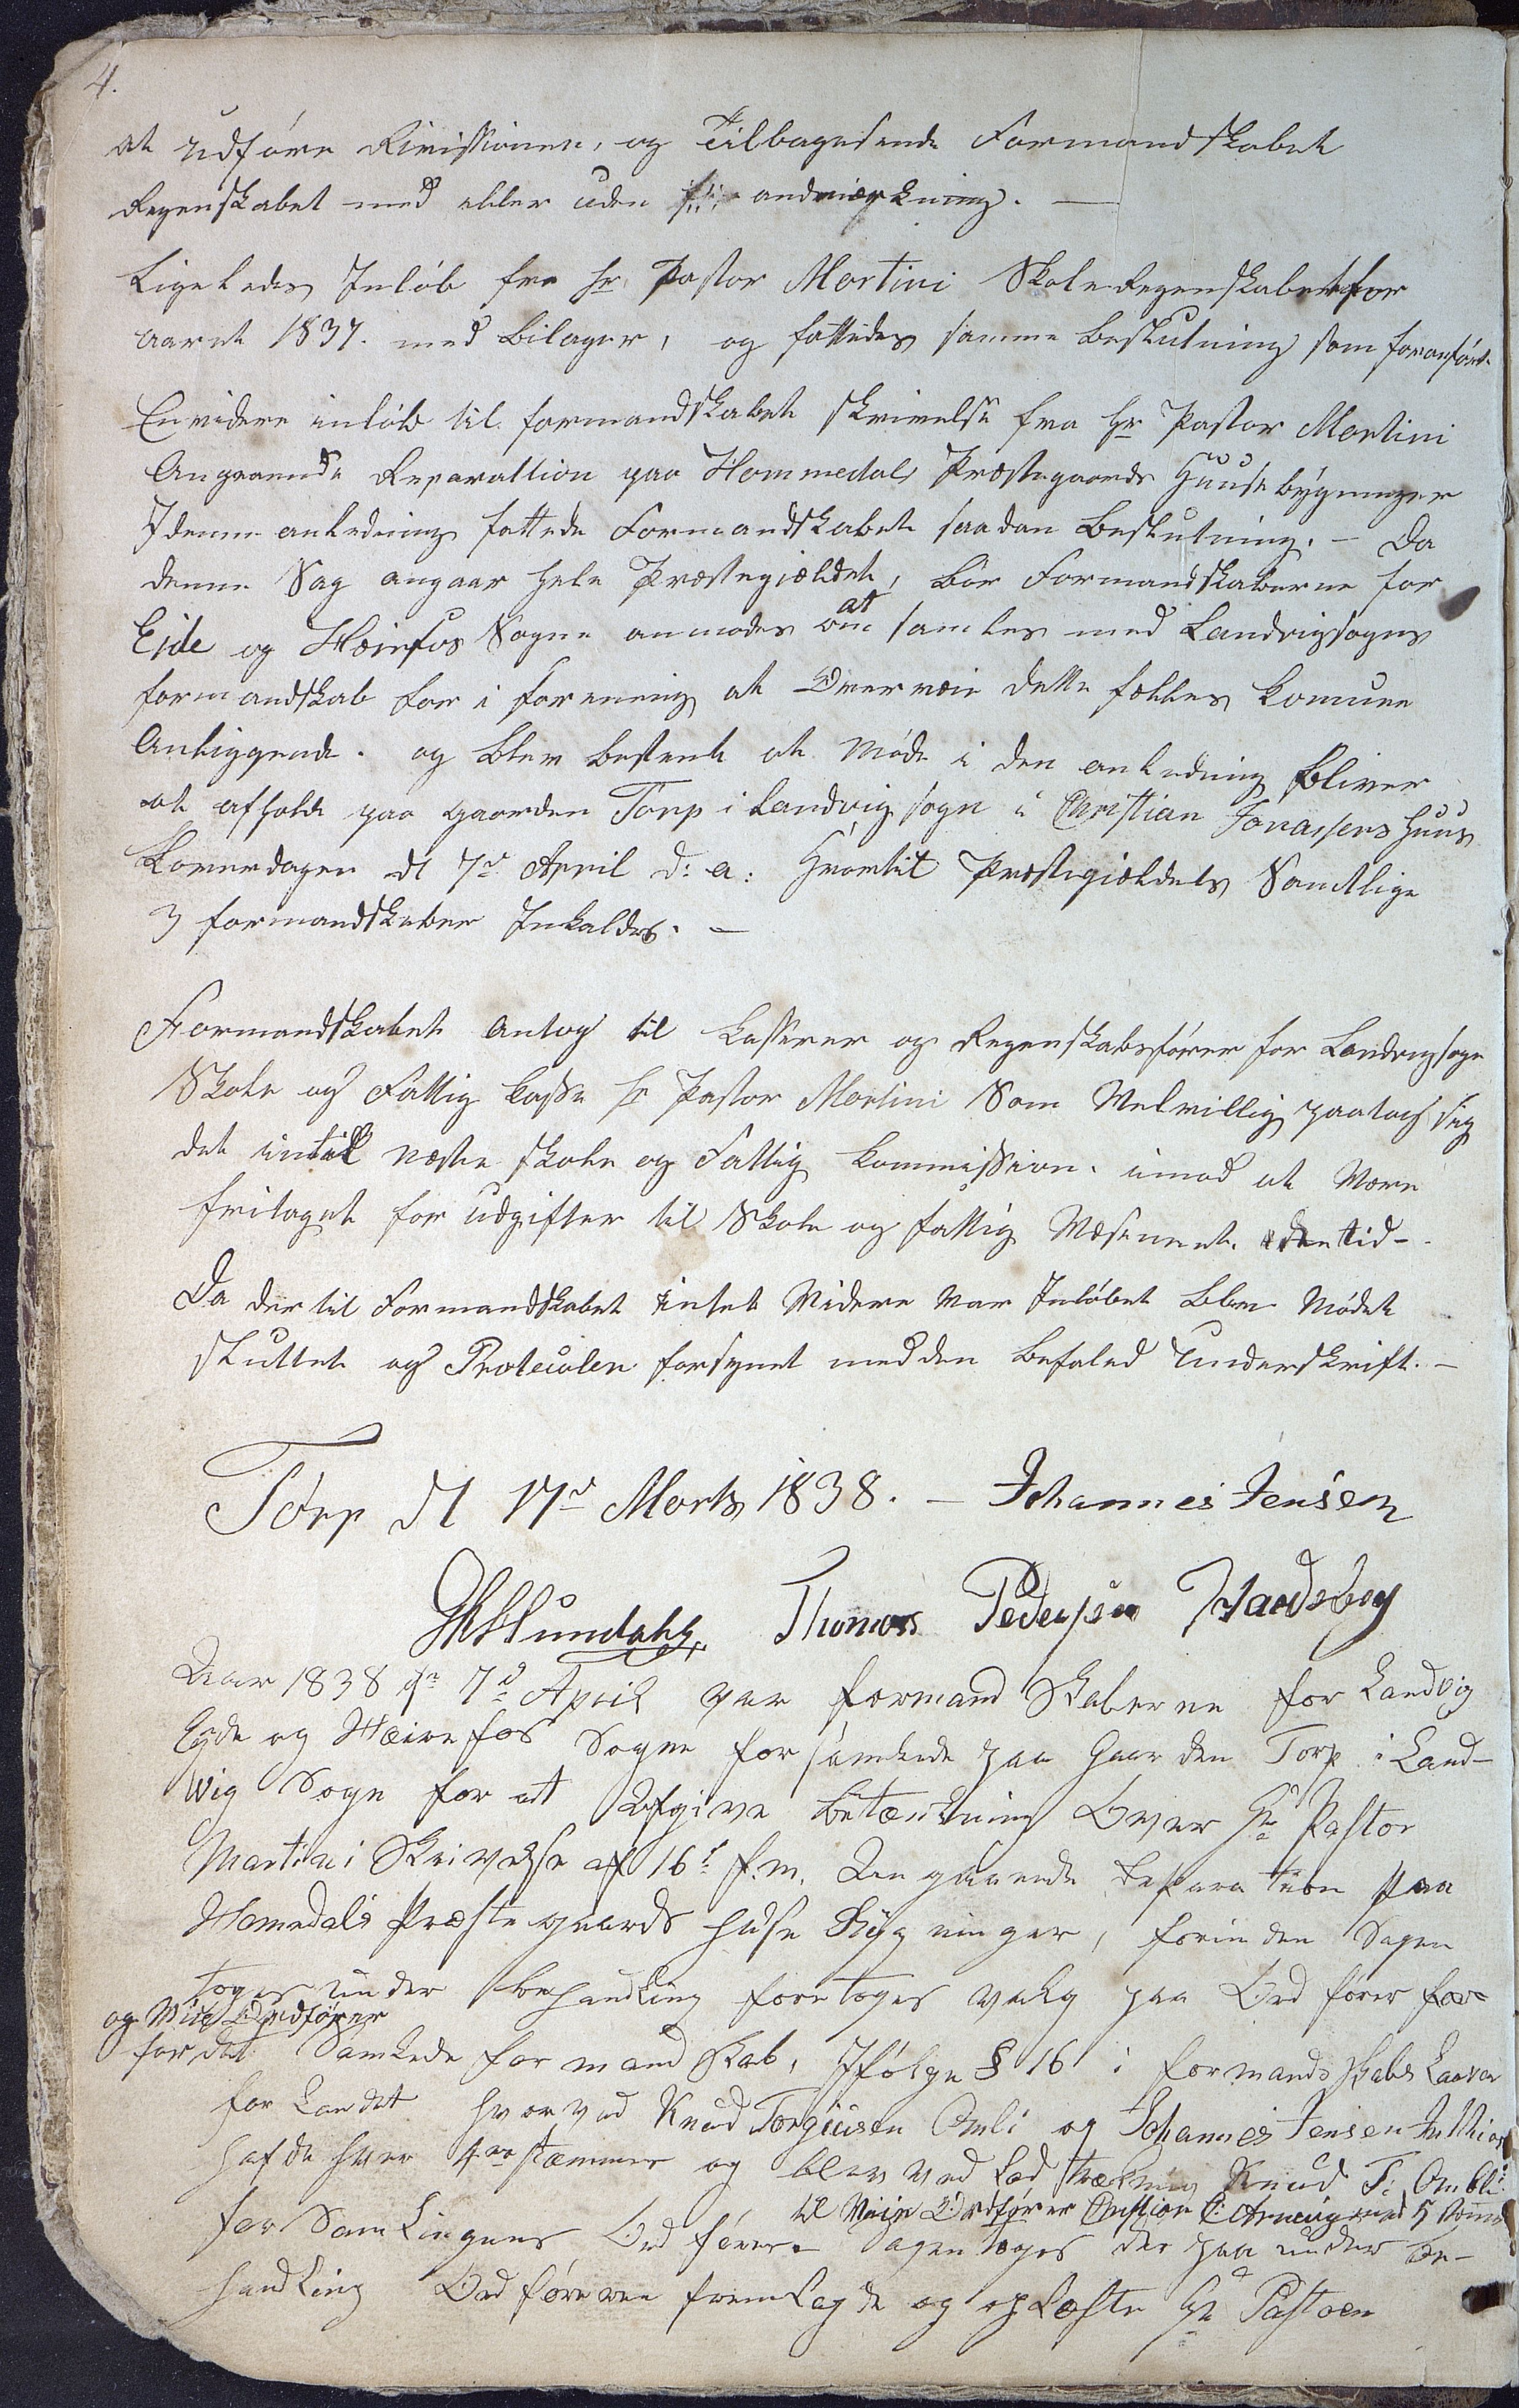 4.
at udføre Revissionen, og Tilbagesende Formandskabet
Regenskabet med eller uden andmærkning. —
Ligeledes Inløb fra Hr Pastor Martini Skole Regenskabet for
aaret 1837. med Bilager, og fattedes samme Beslutning som foranført
Envidere inløb til formandskabet skrivelse fra Hr Pastor Martini
Angaaende Reparattion paa Hommedals Præstegaards Huusebygninger
I denne anledning fattede Formandskabet saadan Beslutning. — Da
denne Sag angaar hele Præstegjældet, bør Formandskaberne for
Eide og Hæirefos Sogne anmodes om at samles med Landvigsogns
formandskab for i forening at Overveie dette fælles Komune
Anliggende. og blev bestemt at Møde i den anledning bliver
at afholde paa gaarden Torp i Landvig sogn i Christian Jonassens Huus
Løverdagen d 7de April d: a: Hvortil Præstegjældets Samtlige
3 formandskaber Inkaldes. —
Formandskabet antog til Kasserer og Regenskabsfører for Landvigsogn
Skole og Fattig Kasse Hr Pastor Martini Som Velvillig paatog sig
det indtil næste skole og Fattig Kommission. imod at være
fritaget for udgifter til Skole og fattig Væsenet den tid -
Da der til Formandskabet intet Videre var Inløbet blev Mødet
sluttet og Protocolen forsynet med den befaled Underskrift. —
Torp d 17de Marts 1838. — Johannes Jensen
Thomas Pedersen
Aar 1838 dn 7d April var formand Skaberne for Landvig
Eyde og Hæirefos Sogne forsamlede paa Gaarden Torp i Land-
vig Sogn for at Afgive Betænkning Over Hr Pastor
Martini Skrivelse af 16de f. m. Angaaende Reparation paa
Homedals Præstegaards Huse Bygninger, forinden Sagen
toges under behandling foretoges valg paa Ordfører for
og Vice Ordfører
for det Samlede formandskab, Ifølge § 16 i formandskabs Loven
for Landet hvorved Knud Torgiusen Omli og Johannes Jensen
hafde hver stemmer og blev ved Lodtrækning Knud T: Omli
til Vice Ordfører Christian med 5 stemer
for Samlingens Ordfører. Sagen toges der paa under be-
handling Ordføreren fremlagde og oplæste Hr Pastoren